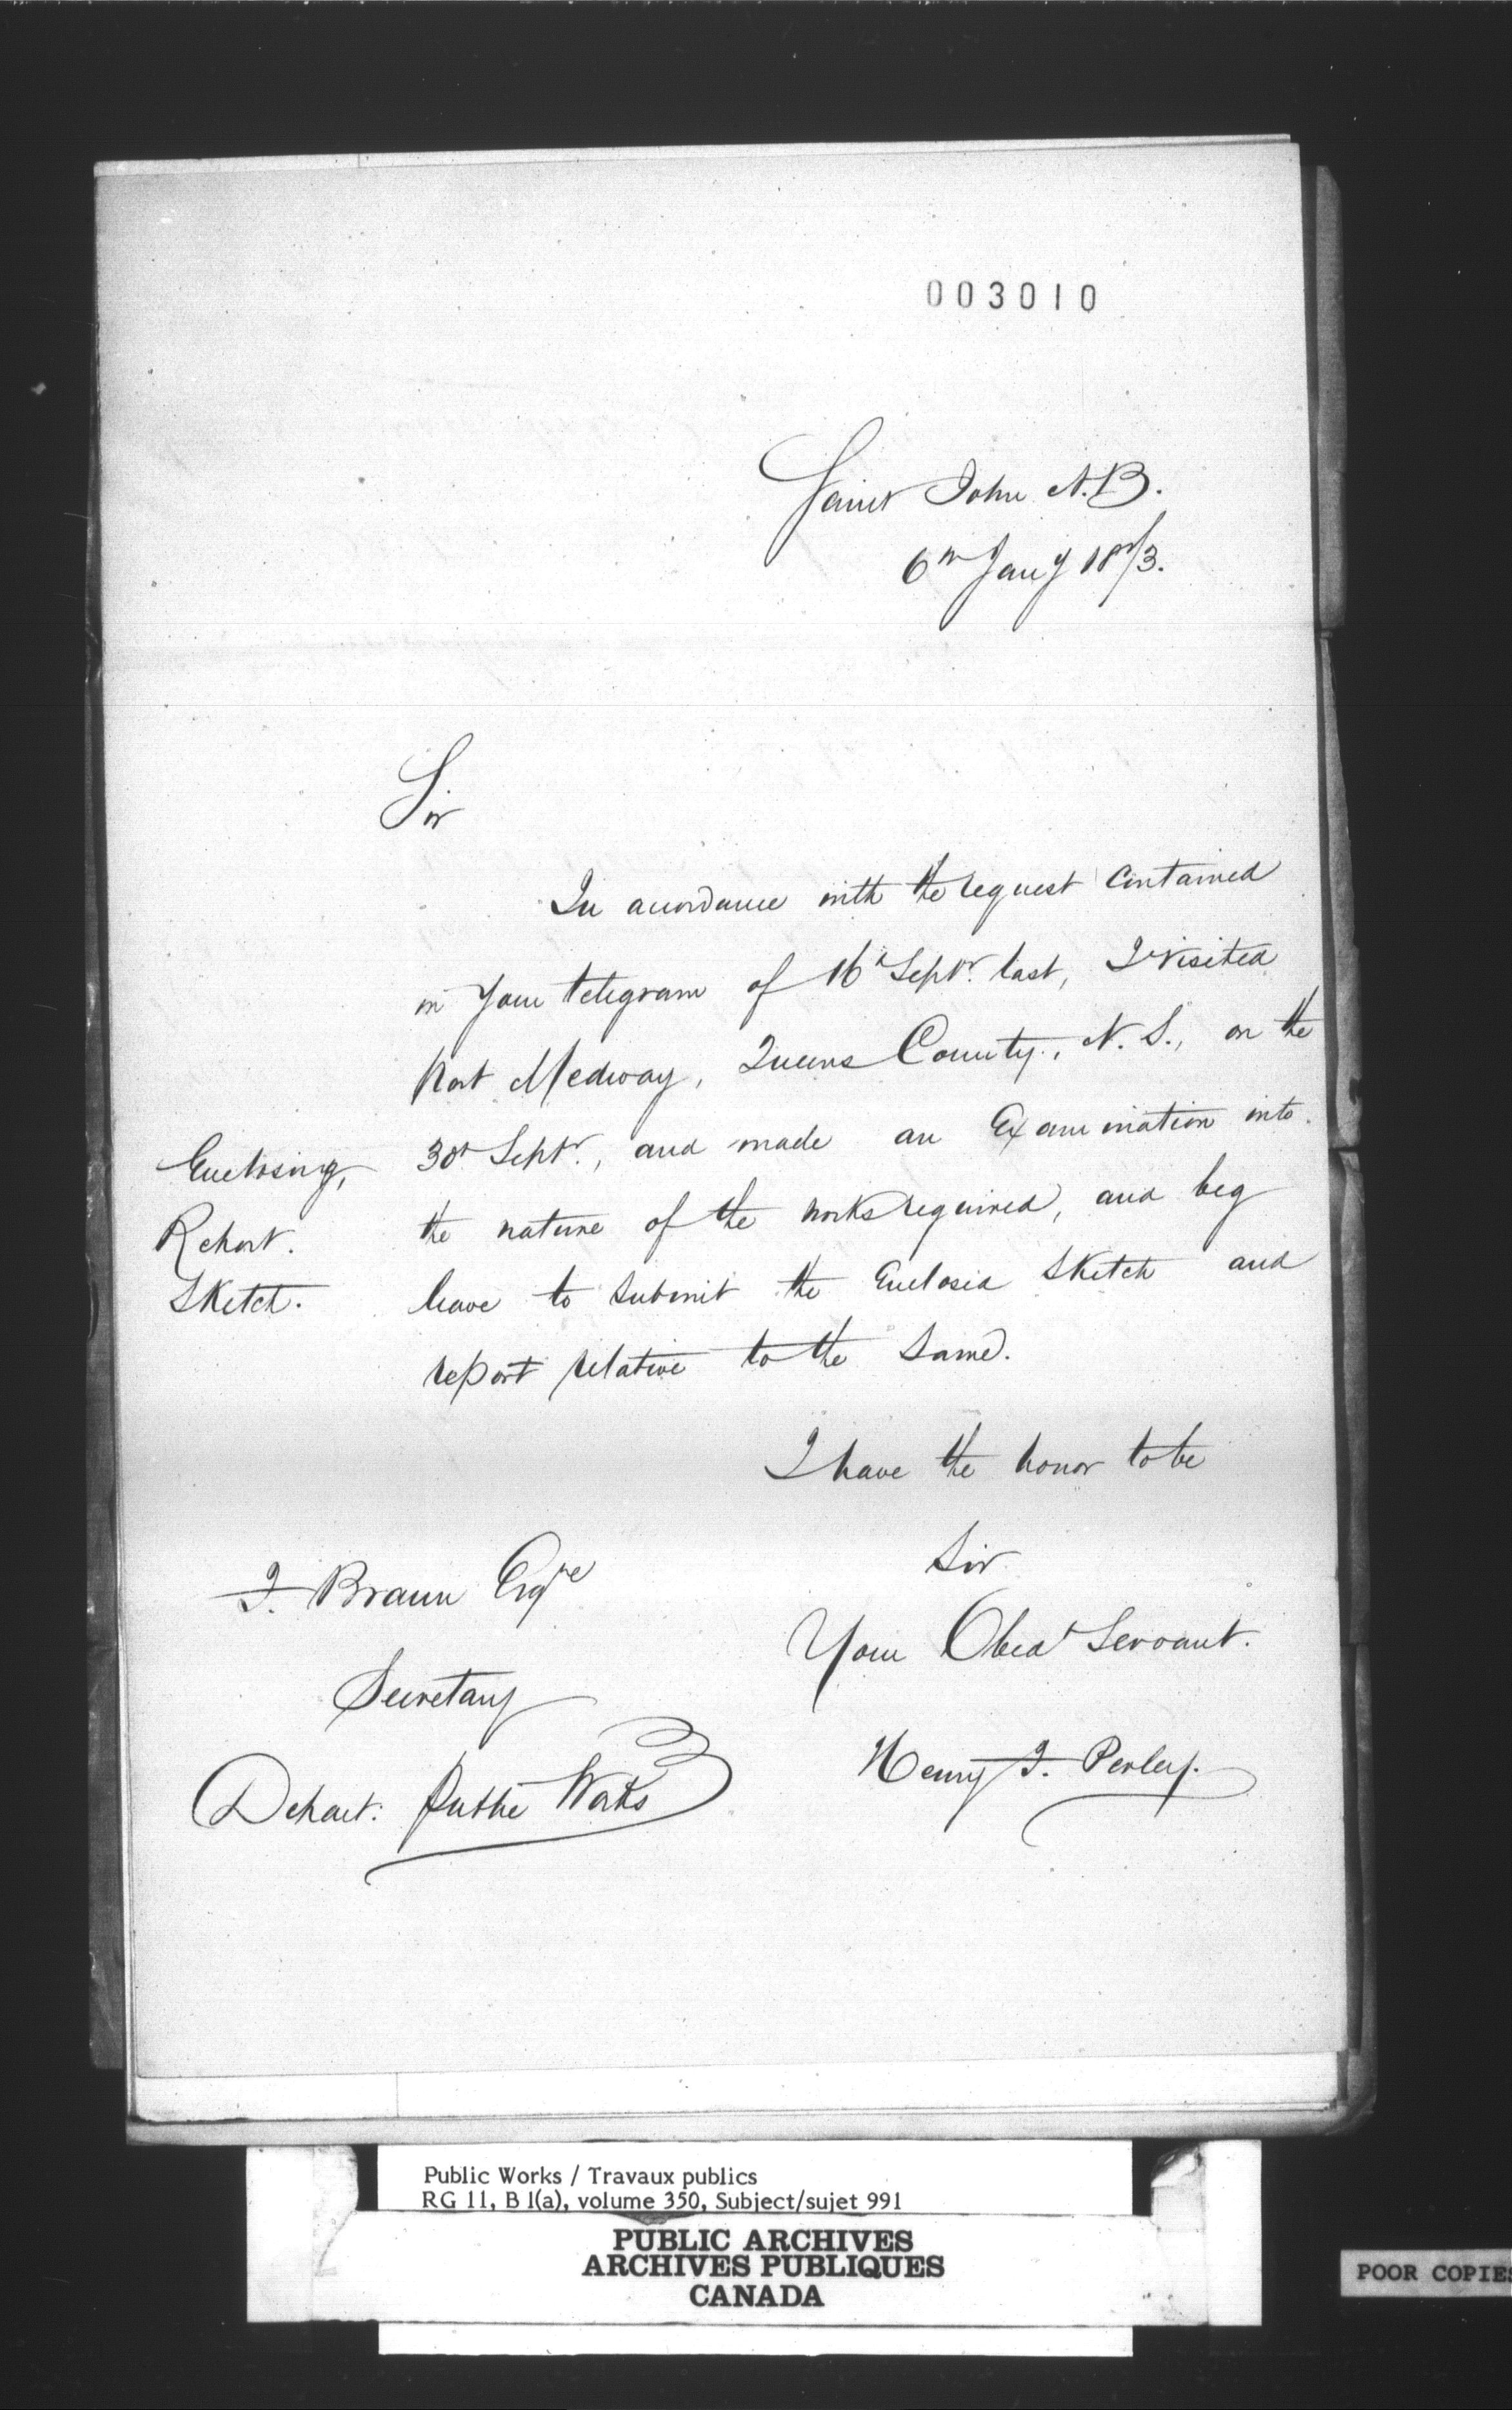 003010
Saint John N.B.
6th Jany 1873.
Sir
In accordance with the request contained
in your telegram of 16th Septr. last, I visited
Port Medway, Queens County, N.S., on the
30th Septr., and made an Examination into
Enclosing,
Report.
Sketch.
the nature of the works required, and beg
leave to submit the Enclosed Sketch and
report relative to the same.
I have the honor to be
Sir
Your Obedt Servant.
Henry F. Perley.
F. Braun Esqre
Secretary
Depart: Public Works
Public Works / Travaux publics
RG 11, B 1(a), volume 350, Subject/sujet 991
PUBLIC ARCHIVES
ARCHIVES PUBLIQUES
CANADA
POOR COPIES